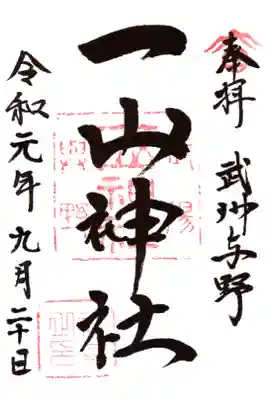 奉拝 武州与野
一山神社
令和元年九月二十日